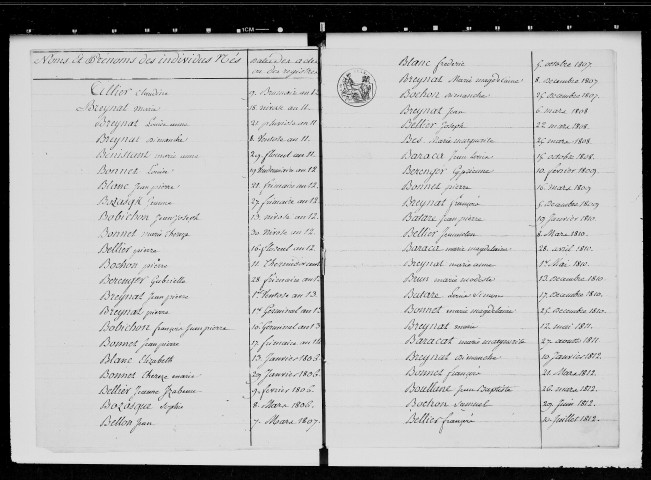 Noms et Prenoms des individus Nés
dates des actes ou des registres
Allier Claudine 9. Brumaire an 12
Breynat marie 18 nivose an 11.
Breynat Louise anne 21 pluviose an 11.
Breynat dimanche 8. Ventose an 11.
Benistant marie anne 29 floreal an 11.
Bonnet Louise 19 Vendemiaire an 12.
Blanc Jean pierre 21. frimaire an 12.
27 frimaire an 12.
Bobichon Jean joseph 13. nivose an 12.
Bonnet marie Thereze 30 Nivose an 12.
Bellier pierre 16 floreal an 12.
Bochon pierre 11. Thermidor
Berenger Gabrielle 28 frimaire an 13
Breynat Jean pierre 1er Ventose an 13.
Breynat pierre 1er Germinal an 13
Bobichon françois Jean pierre 10 Germinal an 13
Bonnet Jean pierre 17 frimaire an
Blanc Elizabeth 13 Janvier 1806.
Bonnet Thereze marie 29 Janvier 1806.
Bellier Jeanne Izabeau 9. fevrier 1806.
Bozasque Sophie 8. Mars 1806.
Bellon Jean 7. Mars 1807.
Blanc frederic 5. octobre 1807.
Breynat Marie magdelaine 8. Decembre 1807
Bochon dimanche 25 decembre 1807.
Breynat Jean 6 mars 1808
Bellier Joseph 22 mars 1808.
Bes Marie marguerite 25 mars 1808.
Baraca Jean Louis 15 octobre 1808.
Berenger 10. fevrier 1809.
Bonnet pierre 16 mars 1809
Breynat françois 5. Decembre 1809
Batare Jean pierre 19 Janvier 1810.
Bellier 8. Mars 1810.
Baraca marie magdelaine 28. avril 1810.
Breynat marie anne 1er Mai 1810.
Brun marie modeste 13. decembre 1810.
Butare Louis Simon 17. decembre 1810.
Bonnet marie magdelaine 25. decembre 1810.
Breynat marie 12. mai 1811.
Baracat marie marguerite 27. aoust 1811.
Breynat dimanche 10 Janvier 1812.
Bonnet françois 21. Mars 1812.
Bouillane Jean Baptiste 26. mars 1812.
Bochon Samuel 29. Juin 1812.
Bellier françois 10. Juillet 1812.